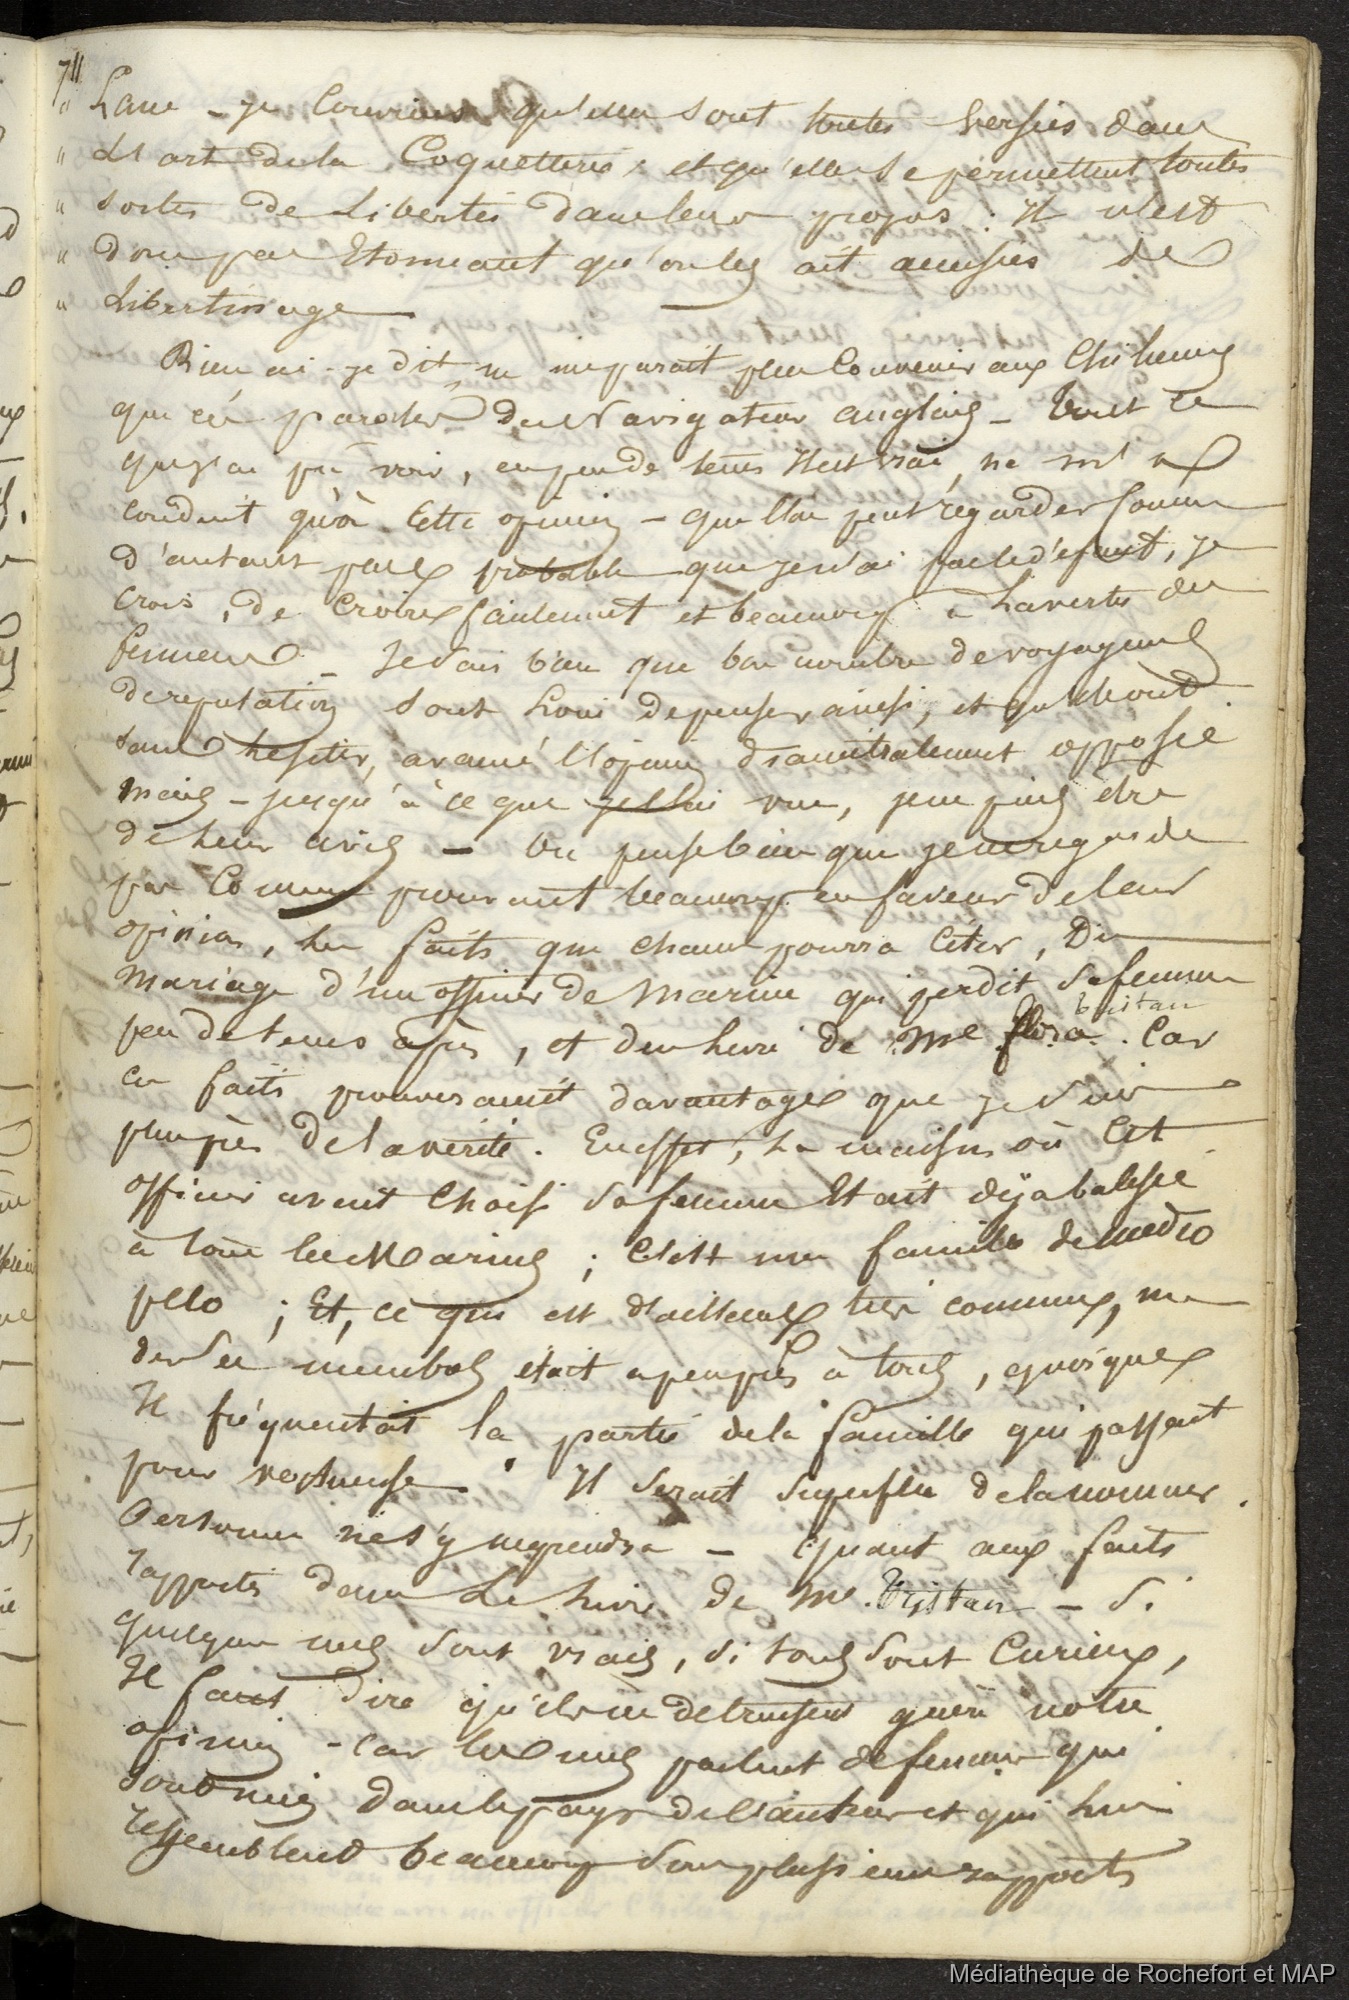 711
" sexe - je conviens qu'elles sont toutes versées dans
" l'art de la Coquetterie, et qu'elles se permettent toutes
" sortes de libertés dans leurs propos. Il n'est
" donc pas Etonnant qu'on les ait accusées de
" libertinage
Rien ai-je dit, ne me parait peu Convenir aux Chiliennes
que ces paroles du Navigateur anglais - tout ce
que j'ai pu voir, en peu de tems il est vrai, ne m'a
conduit qu'à cette opinion - que l'on peut regarder comme
d'autant plus probable que je n'ai pas le défaut, je
crois, de croire facilement et beaucoup à la vertu des
femmes - Je sais bien que bon nombre de voyageurs
de reputation sont loin de penser ainsi, et qu'ils ont
sans hesiter, avancé l'opinion diametralement opposée
mais - jusqu'à ce que je l'ai vue, je ne puis être
de leur avis - On pense bien que je ne regarde
pas Comme prouvant beaucoup en faveur de leur
opinion, les faits que chacun pourra Citer, Du
mariage d'un officier de marine qui perdit sa femme
peu de tems après, et du livre de Me flora tristan. Car
ces faits prouveraient davantage que je suis
plus près de la verité. En effet, la maison où Cet
officier avait Choisi sa femme Etait déja balisée
à tous les Marins; C'est une famille de medio
pelo; Et, ce qui est d'ailleurs très commun, un
de ses membres était à peu près à tous, quoique
Il fréquentait la partie de la famille qui passait
pour vertueuse. Il serait superflu de la nommer.
Personne ne s'y meprendra - Quant aux faits
rapportés dans Le livre de Me. Tristan - Si
quelques uns sont vrais, si tous sont Curieux,
Il faut dire qu'ils ne detruisent guère notre
opinion - Car les uns parlent de femmes qui
sont nées dans le pays de l'auteur et qui lui
ressemblent beaucoup sous plusieurs rapports
Médiathèque de Rochefort et MAP